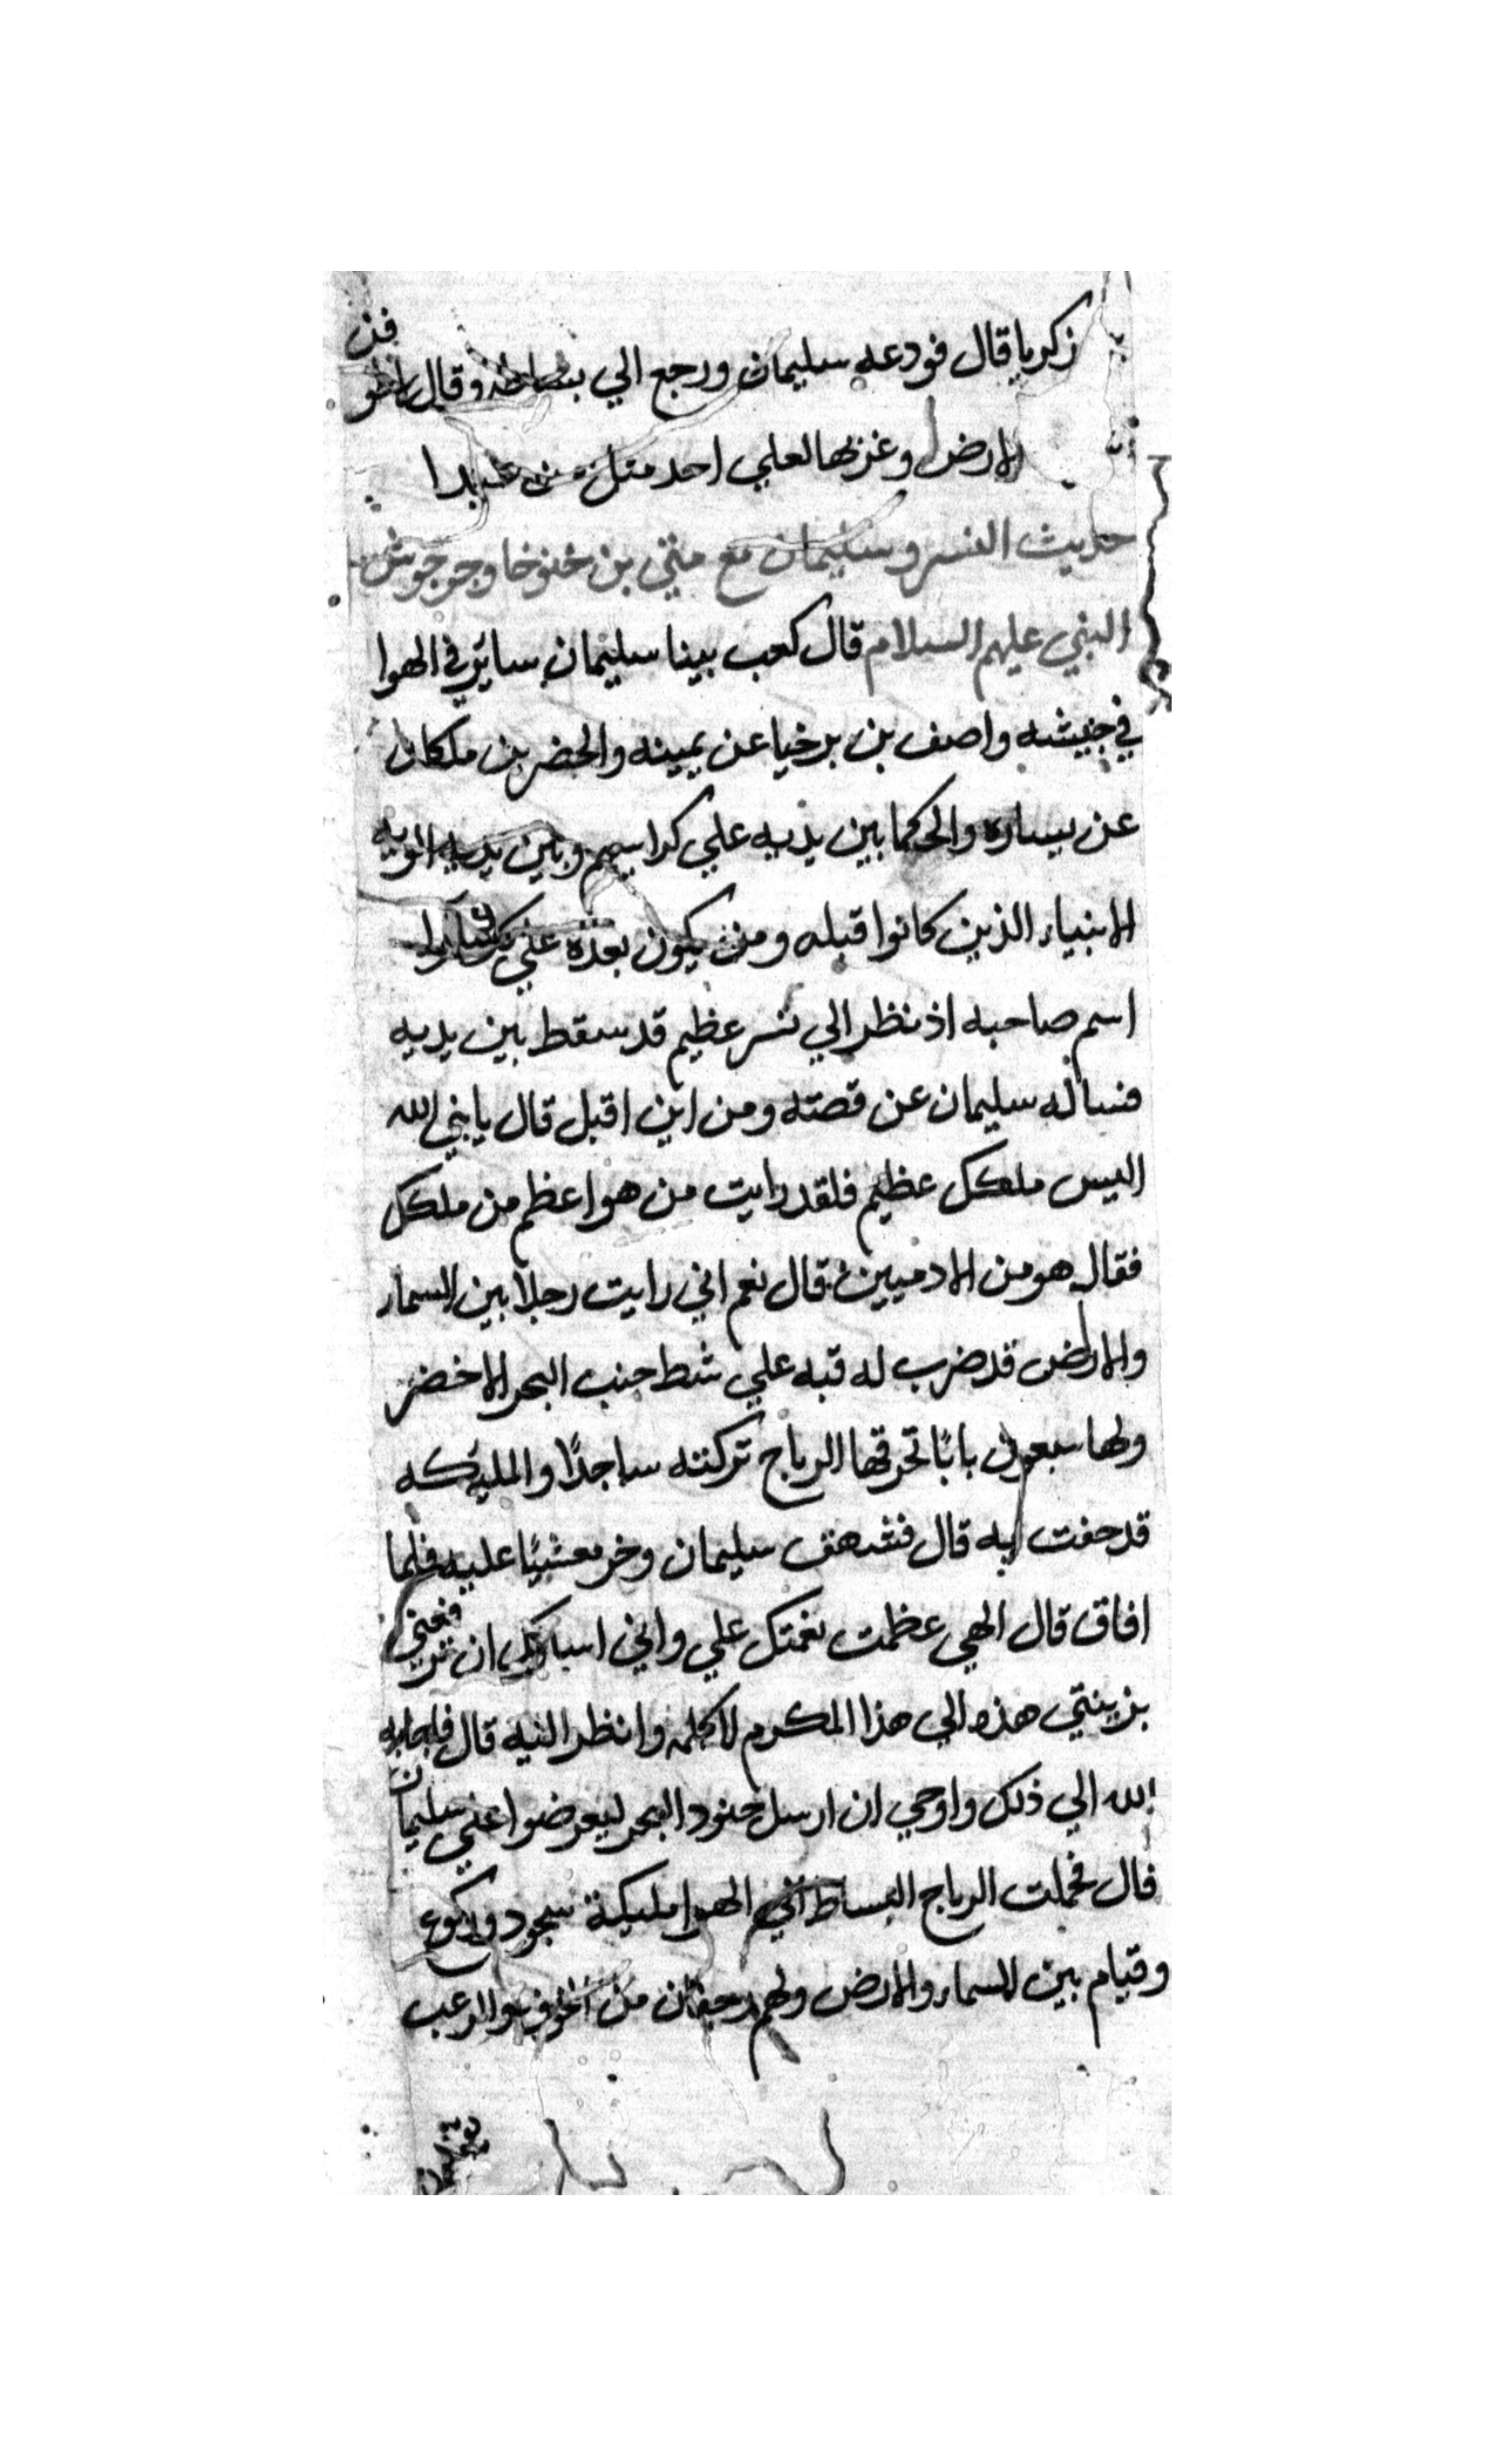 زكريا قال فودعه سليمان ورجع الي بساطه وقال
الارض وغربها لعلي احد مثل من عبدا
حديث النسر وسليمان مع متي بن خنوخا وجرجوش
النبي عليهم السلام قال كعب بينا سليمان سائر في الهوا
في جيشه واصف بن برخيا عن يمينه والخضر بن ملكان
عن يساره والحكما بين يديه علي كراسيهم وبين يديه الويه
الانبياء الذين كانوا قبله ومن يكون بعده علي
اسم صاحبه اذ نظر الي نسر عظيم قد سقط بين يديه
فساله سليمان عن قصته ومن اين اقبل قال يا نبي الله
اليس ملكك عظيم فلقد رايت من هو اعظم من ملكك
فقال هو من الادميين قال نعم اني رايت رجلا بين السماء
والارض قد ضرب له قبه علي شط جنب البحر الاخضر
ولها سبعون بابًا تخرقها الرياح تركته ساجدًا والمليكه
قد حفت به قال فشهق سليمان وخر مغشيًا عليه فلما
افاق قال الهي عظمت نعمتك علي واني اسالك ان ترفعني
بزينتي هذه الي هذا المكرم لاكلمه وانظر اليه قال فاجابه
الله الي ذلك واوحي ان ارسل جنود البحر ليعرضوا علي سليمان
قال فحملت الرياح البساط الي الهوا مليكة سجود وركوع
وقيام بين السماء والارض ولهم رجفان من الخوف والرعب